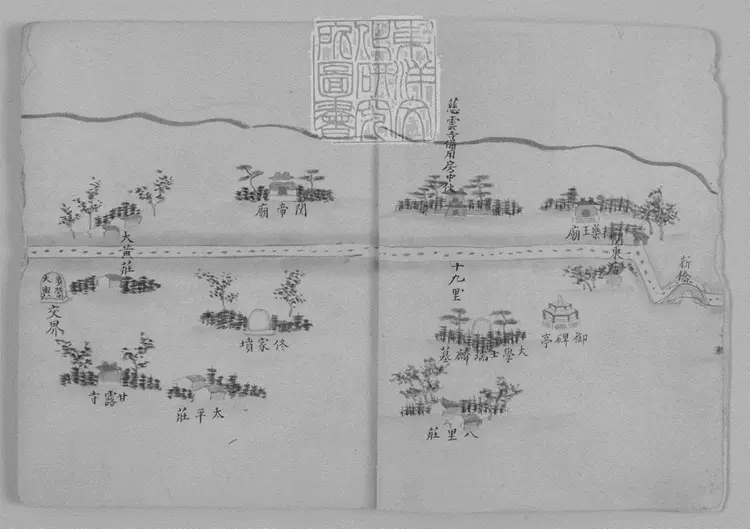 東洋文
化研究
所圖書
慈雲寺備用房中伙
藥王廟
關東店
新橋
關帝廟
大黃莊
十九里
御碑亭
大學士瑞麟墓
八里莊
大興
交界
佟家墳
太平莊
甘露寺